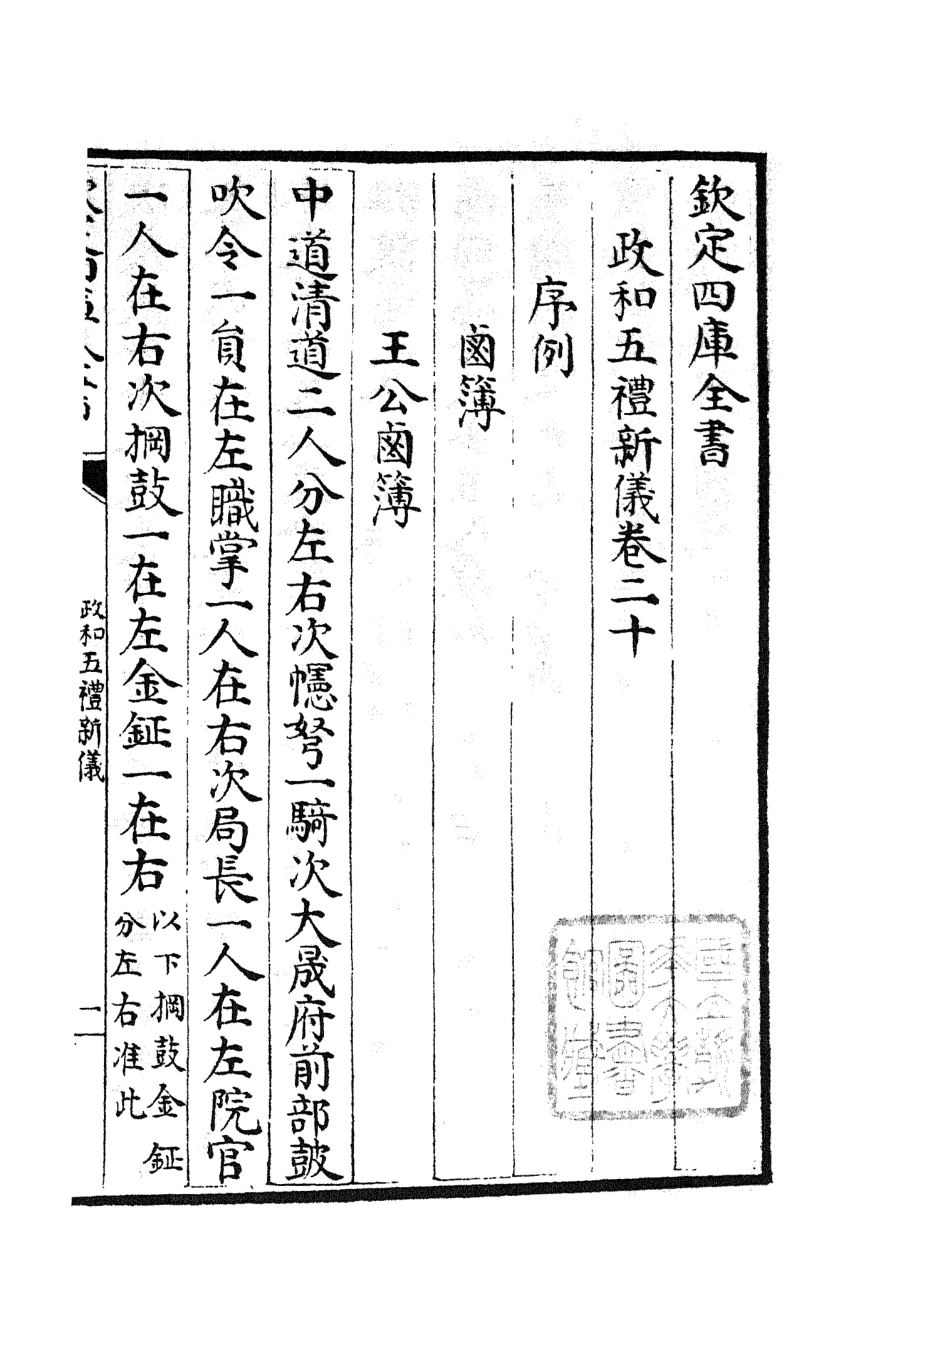 欽定四庫全書
政和五禮新儀卷二十
序例
鹵簿
王公鹵簿
中道清道二人分左右次幰弩一騎次大晟府前部鼓
吹令一員在左職掌一人在右次局長一人在左院官
一人在右次掆鼓一在左金鉦一在右
以下掆鼓金鉦
分左右准此
政和五禮新儀
二